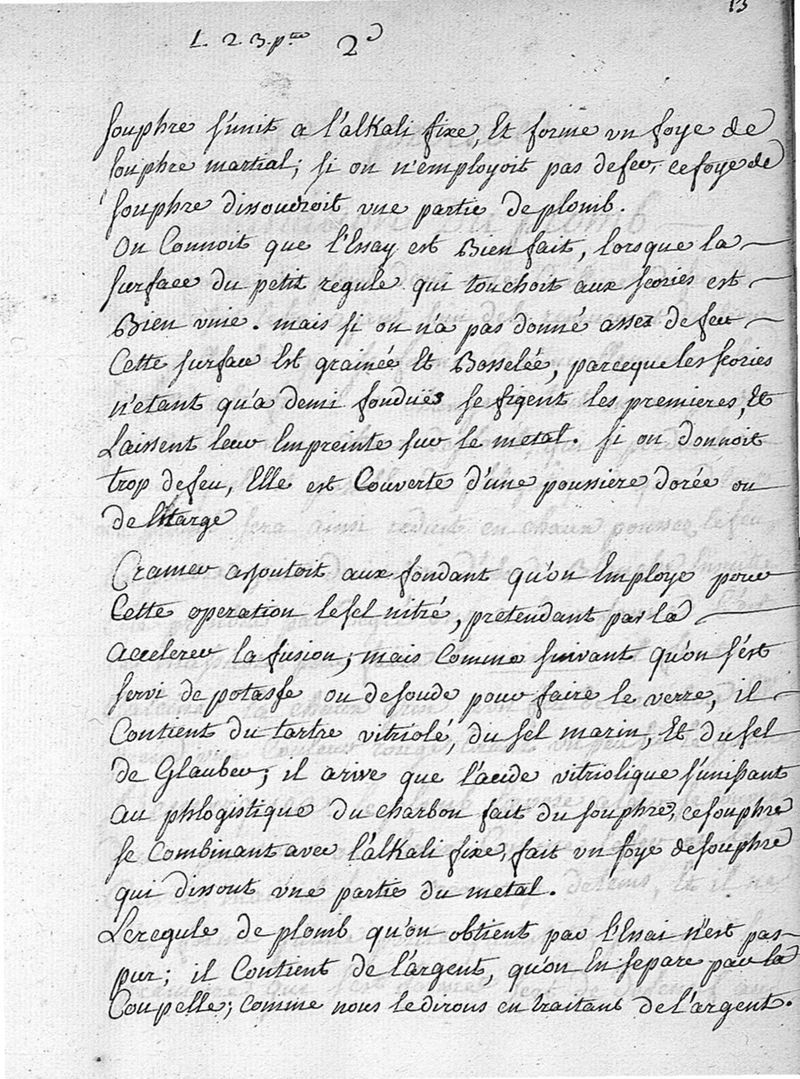 13
L. 2 3. pte 2e
souphre s'unit a l'alkali fixe, Et forme un foye de
souphre martial; si on n'employoit pas de fer, ce foye de
souphre dissoudroit une partie de plomb.
On Connoit que l'Essay est Bien fait, lorsque la
surface du petit regule qui touchoit aux scories est
Bien unie. mais si on n'a pas donné assez de feu
Cette surface Est grainée Et Bosselée, parceque les scories
n'etant qu'a demi fondües se figent les premieres, Et
Laissent leur Empreinte sur le metal. si on donnoit
trop de feu, Elle est Couverte d'une poussiere dorée ou
de litarge
Cramer ajoutoit aux fondant qu'on Employe pour
Cette operation le sel nitré, pretendant par la
accelerer la fusion; mais comme suivant qu'on s'est
servi de potasse ou de soude pour faire le verre, il
Contient du tartre vitriolé, du sel marin, Et du sel
de Glauber; il arive que l'acide vitriolique s'unissant
au phlogistique du charbon fait du souphre, ce souphre
se Combinant avec l'alkali fixe, fait un foye de souphre
qui dissout une partie du metal.
Le regule de plomb qu'on obtient par l'Essai n'est pas
pur; il Contient de l'argent, qu'on En separe par la
Coupelle; comme nous le dirons en traitant de l'argent.